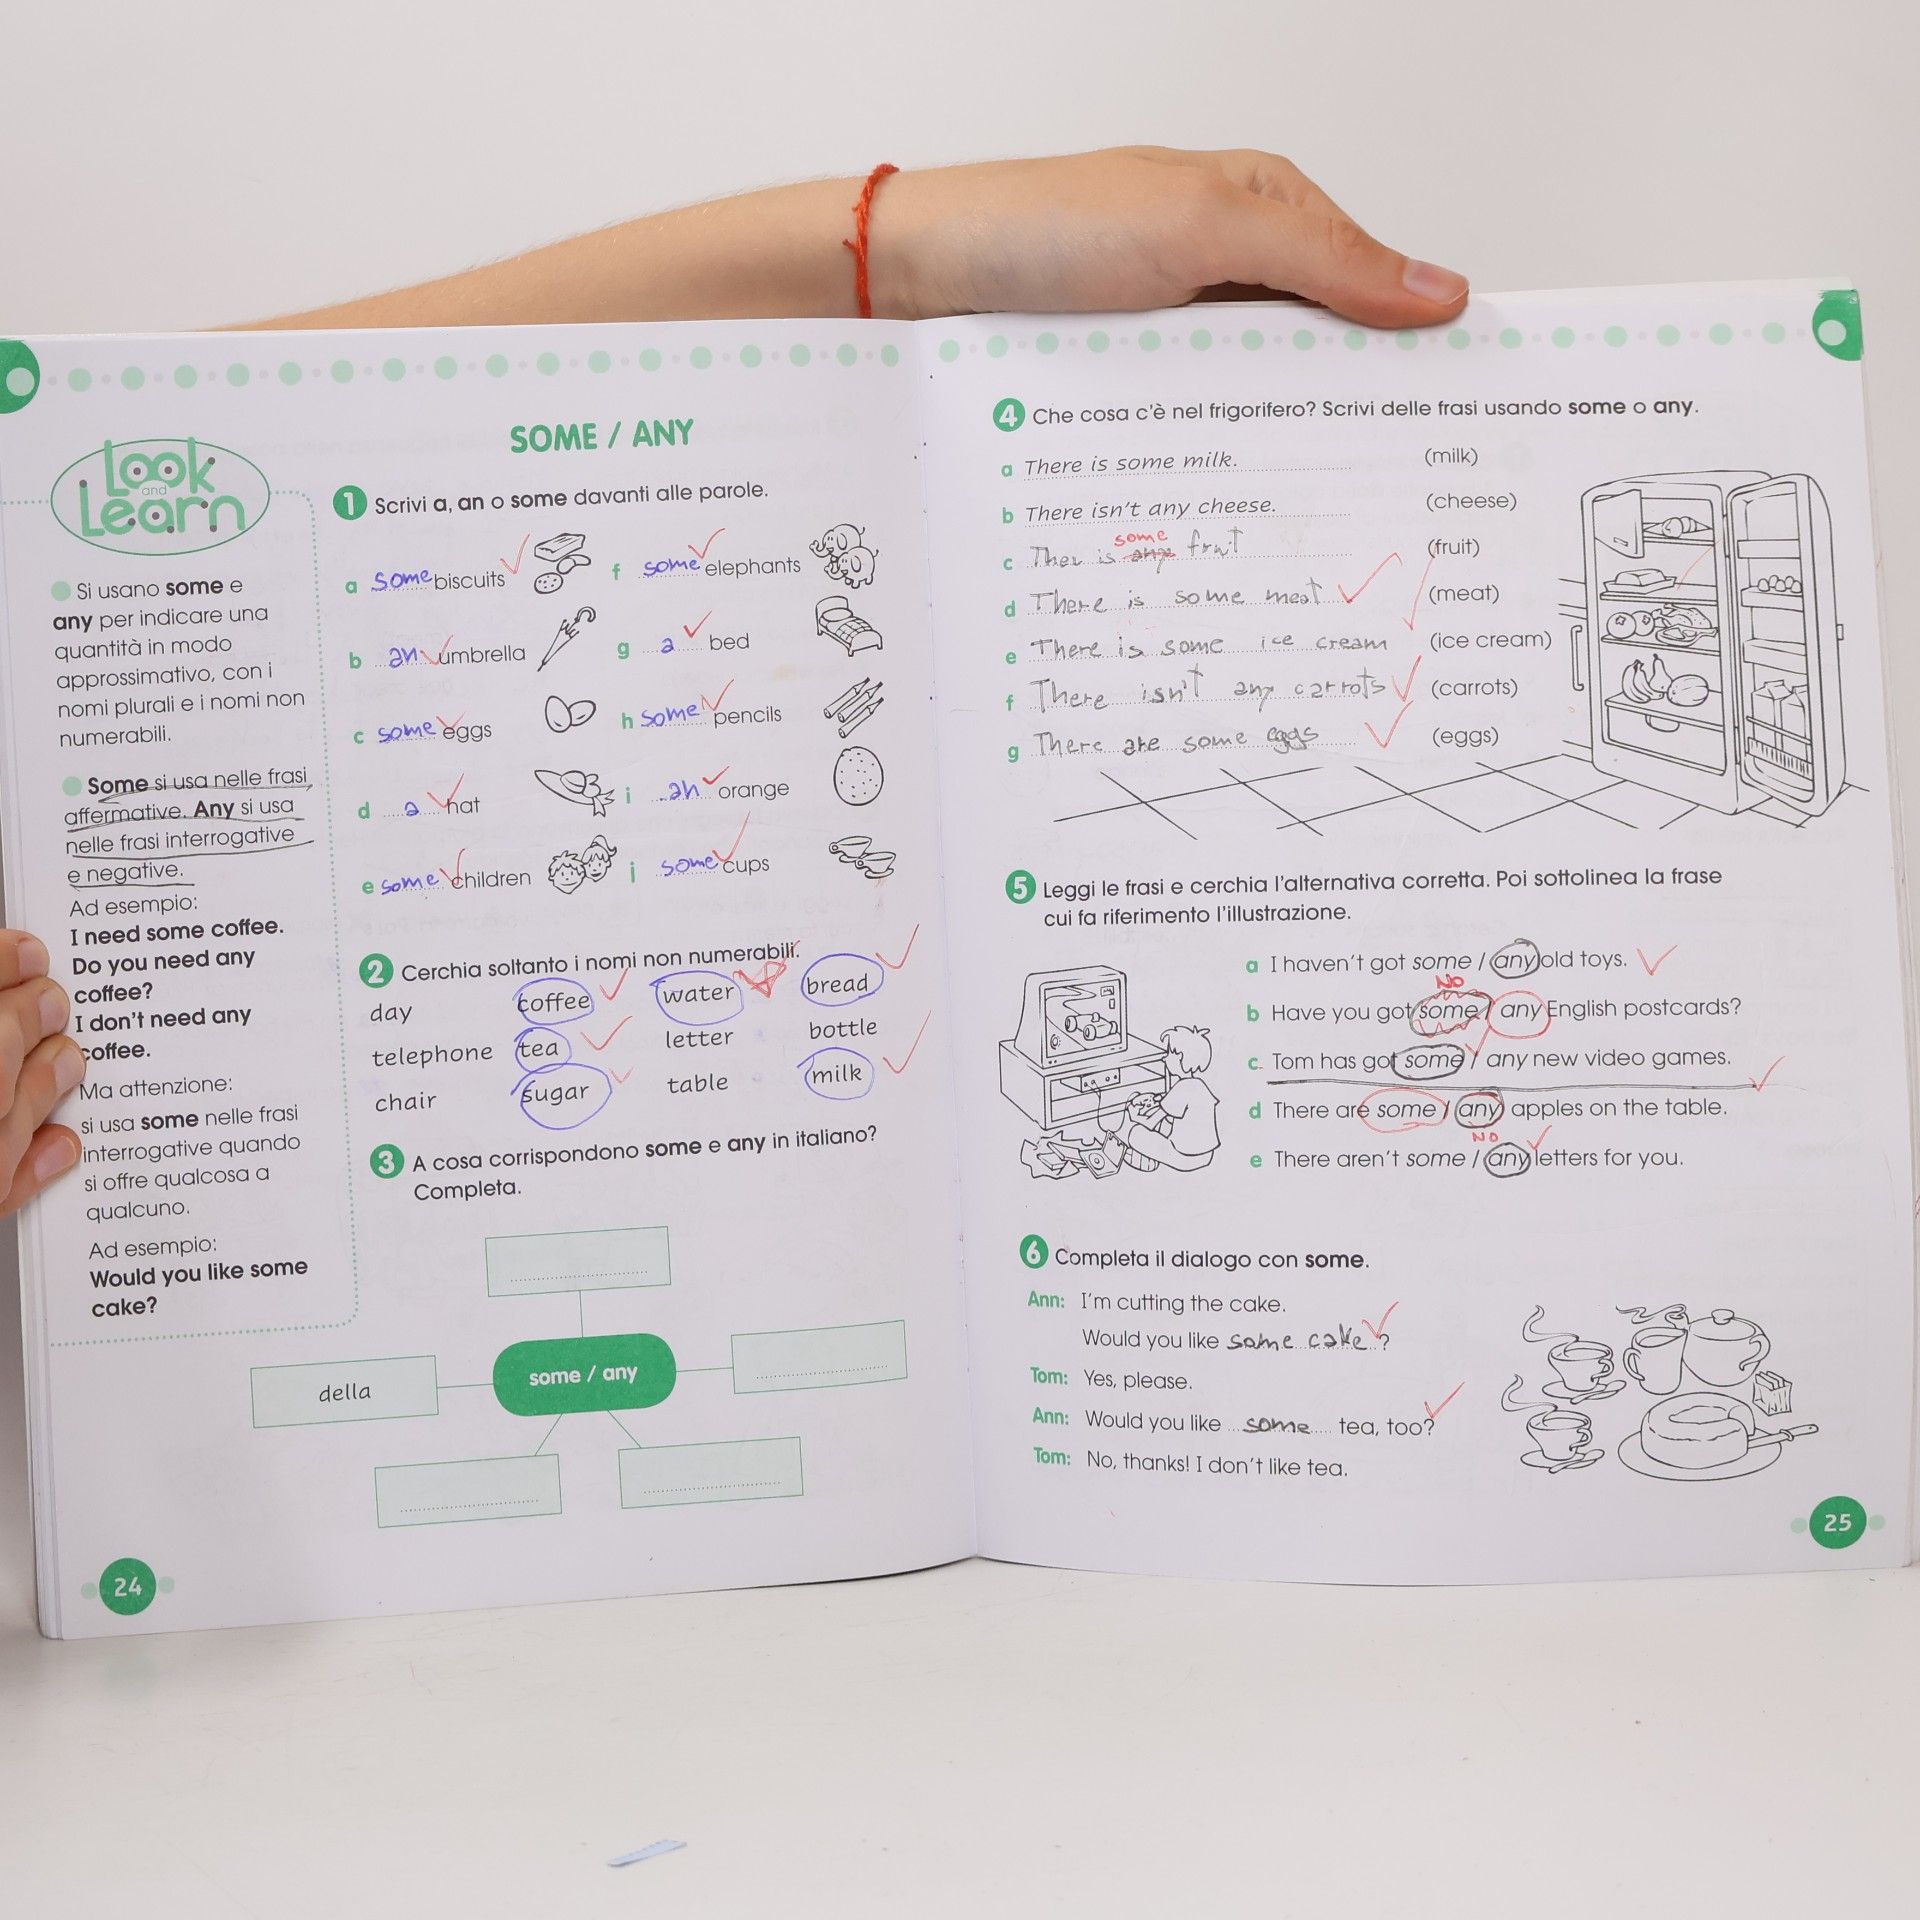 Look
and
Learn
Si usano some e
any per indicare una
quantità in modo
approssimativo, con i
nomi plurali e i nomi non
numerabili.
Some si usa nelle frasi
affermative. Any si usa
nelle frasi interrogative
e negative.
Ad esempio:
I need some coffee.
Do you need any
coffee?
I don't need any
coffee.
Ma attenzione:
si usa some nelle frasi
interrogative quando
si offre qualcosa a
qualcuno.
Ad esempio:
Would you like some
cake?
SOME / ANY
1 Scrivi a, an o some davanti alle parole.
a some biscuits
b an umbrella
c some eggs
d a hat
e some children
f some elephants
g a bed
h some pencils
i an orange
j some cups
2 Cerchia soltanto i nomi non numerabili.
day coffee water bread
telephone tea letter bottle
chair sugar table milk
3 A cosa corrispondono some e any in italiano?
Completa.
some / any
della
24
4 Che cosa c'è nel frigorifero? Scrivi delle frasi usando some o any.
a There is some milk. (milk)
b There isn't any cheese. (cheese)
some
c Ther is any fruit (fruit)
d There is some meat (meat)
e There is some ice cream (ice cream)
f There isn't any carrots (carrots)
g There are some eggs (eggs)
5 Leggi le frasi e cerchia l'alternativa corretta. Poi sottolinea la frase
cui fa riferimento l'illustrazione.
a I haven't got some / any old toys.
NO
b Have you got some / any English postcards?
c Tom has got some / any new video games.
d There are some / any apples on the table.
NO
e There aren't some / any letters for you.
6 Completa il dialogo con some.
Ann: I'm cutting the cake.
Would you like some cake ?
Tom: Yes, please.
Ann: Would you like some tea, too?
Tom: No, thanks! I don't like tea.
25